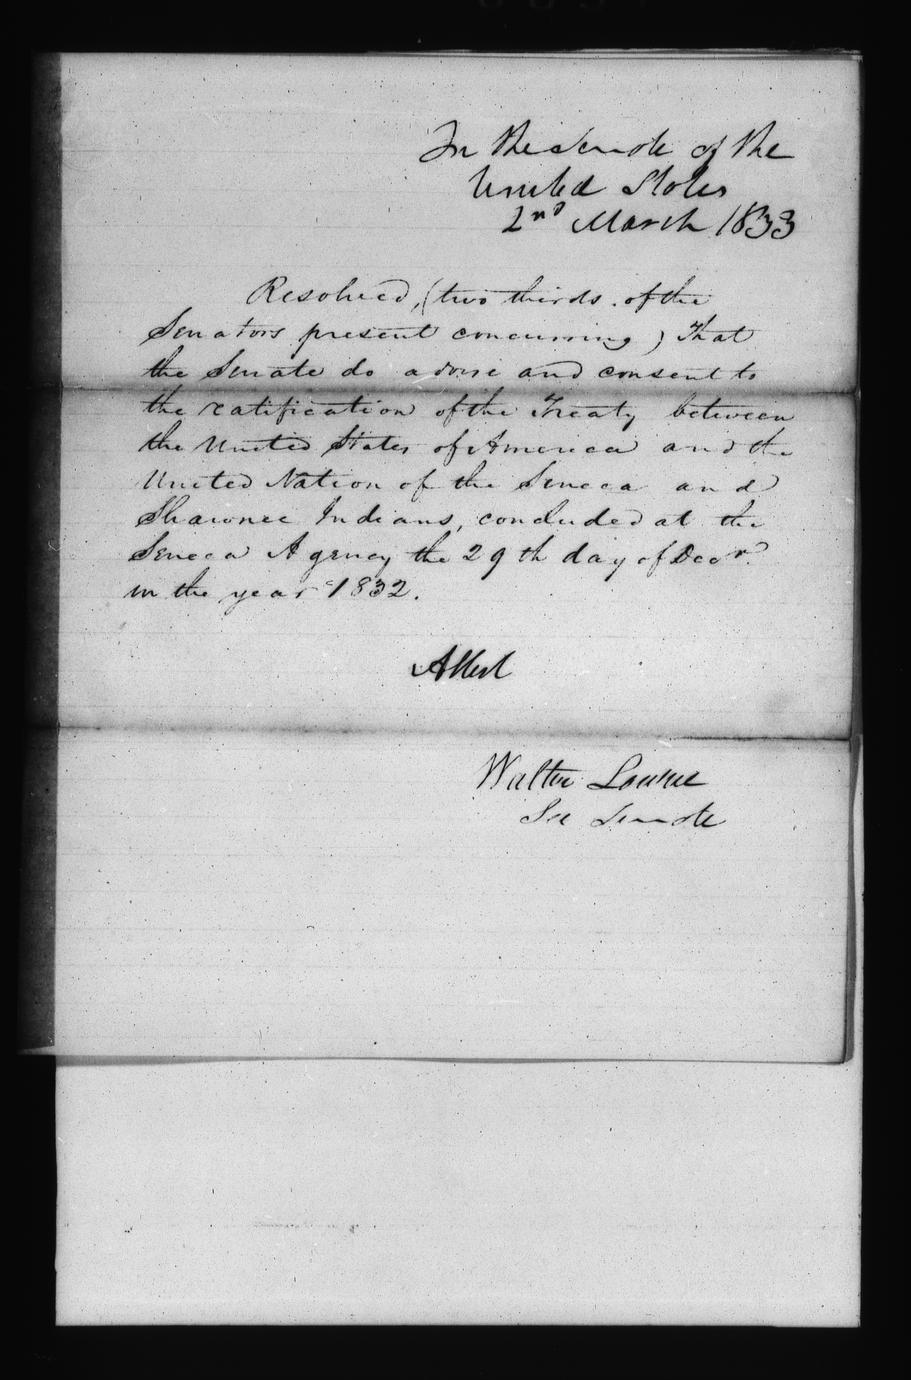 In the Senate of the
United States
2nd March 1833
Resolved, (two thirds of the
Senators present concurring) That
the Senate do advise and consent to
the ratification of the Treaty between
the United States of America and the
United Nation of the Seneca and
Shawnee Indians, concluded at the
Seneca Agency the 29th day of Decr.
in the year 1832.
Attest
Walter Lowrie
Sec Senate